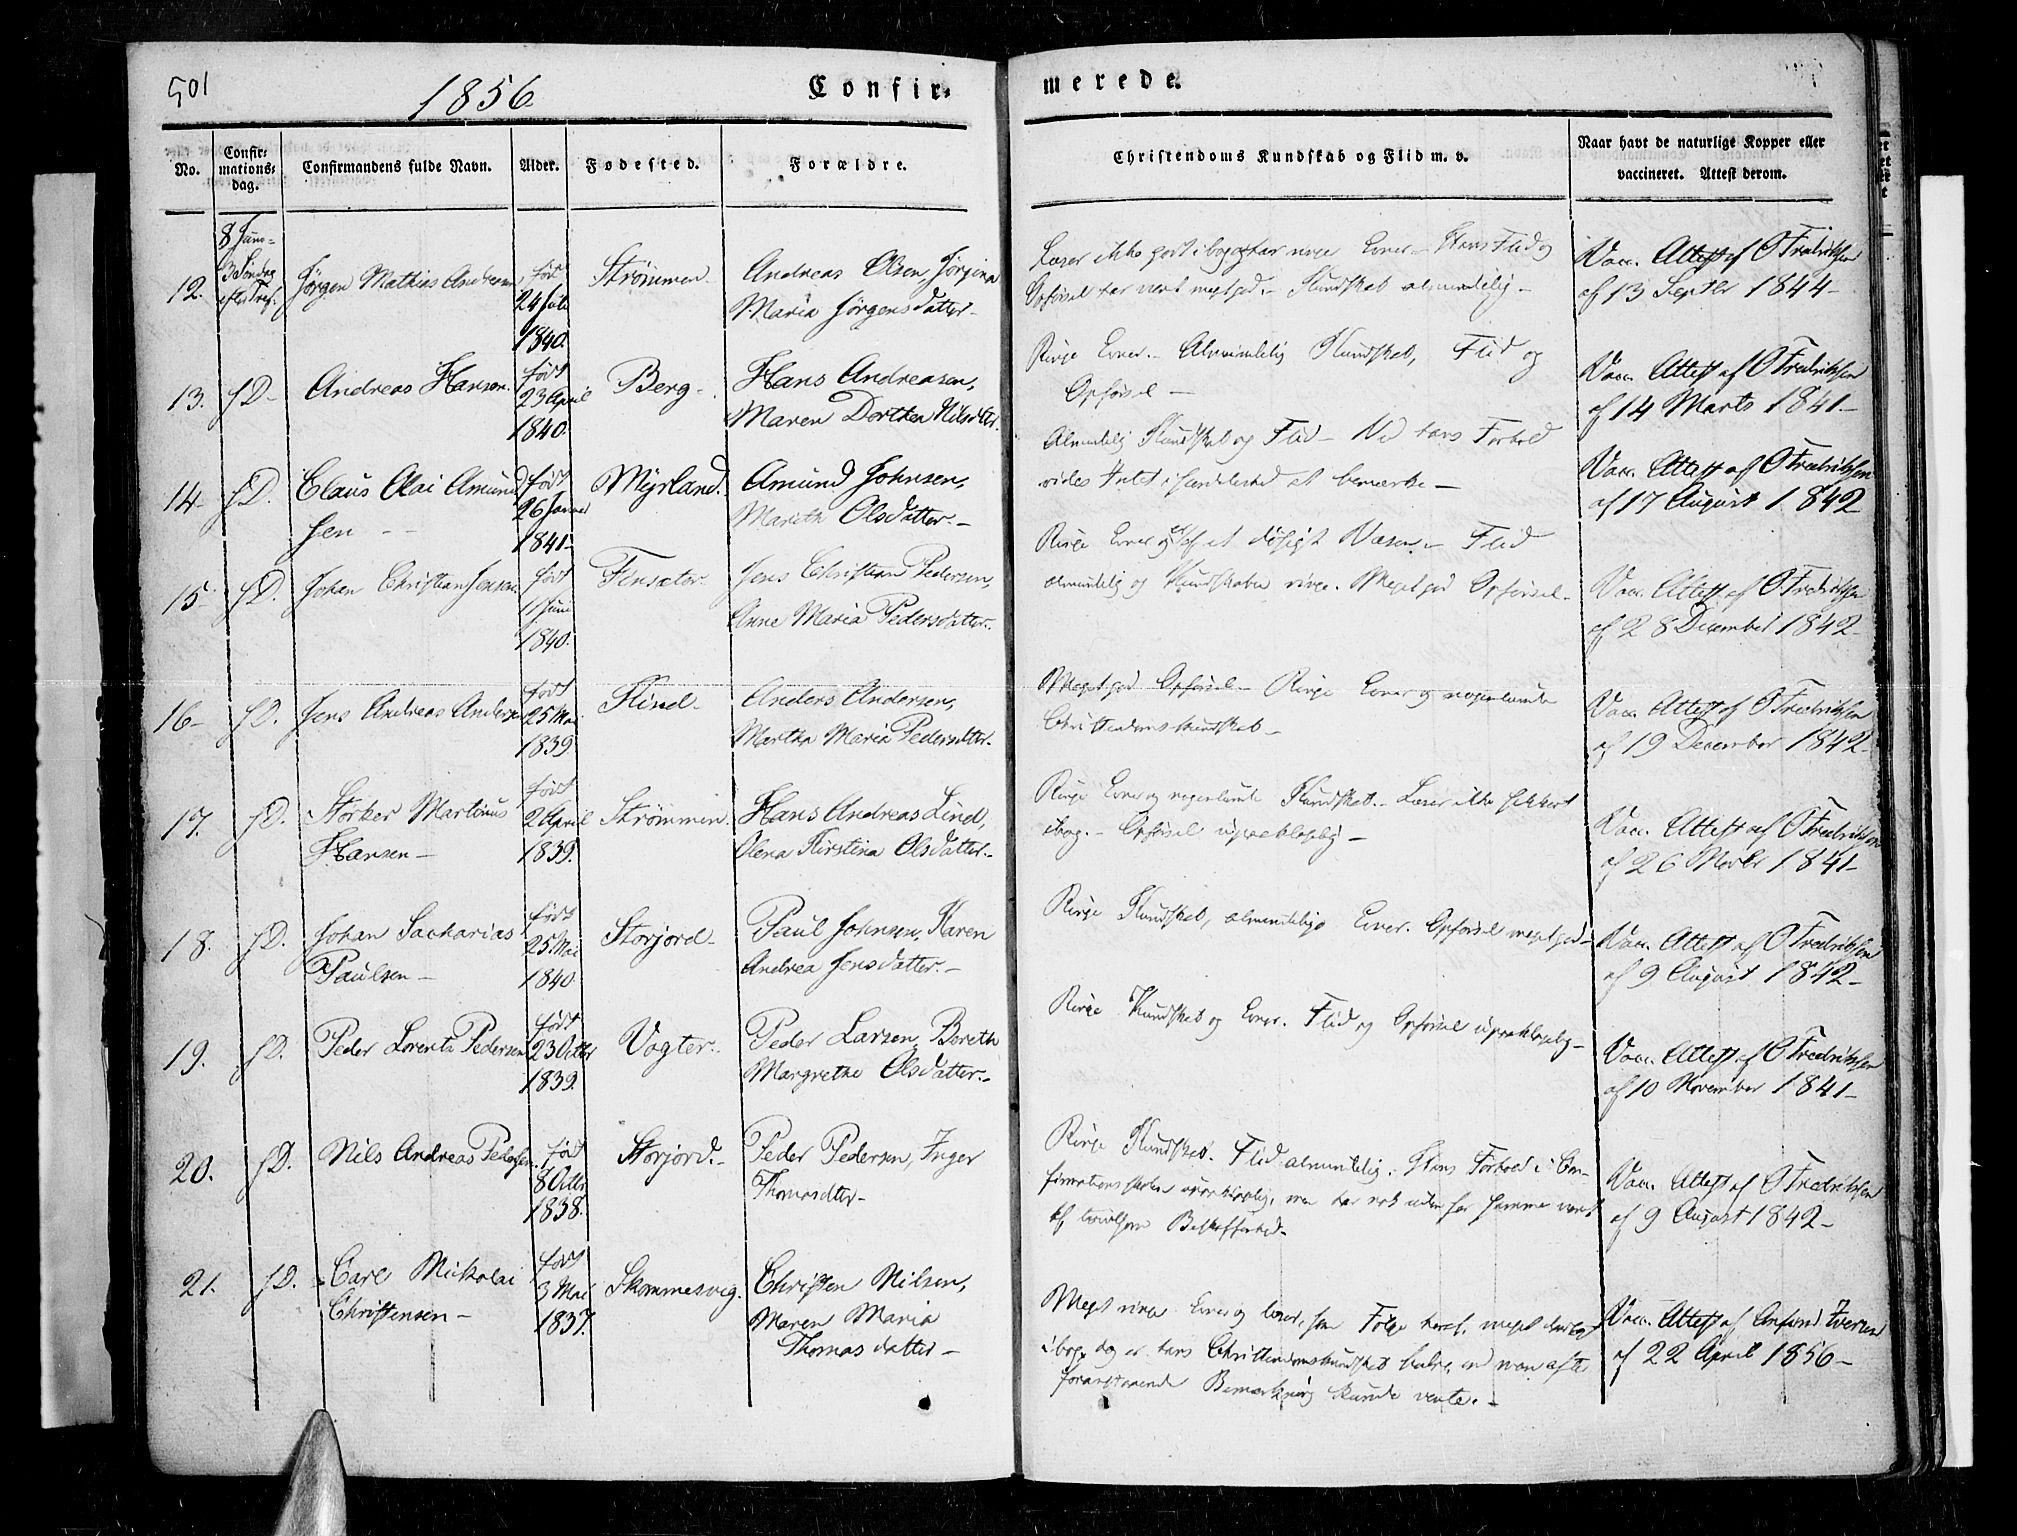 501
1856
Confir-
merede.
No.
Confir-
mations-
dag.
Confirmandens fulde Navn.
Alder.
Fødested.
Forældre.
Christendoms Kundskab og Flid m. v.
Naar havt de naturlige Kopper eller
vaccineret. Attest derom.
12.
8 Juni-
3 Søndag
efter Tref.
Jørgen Mathias Andersen
født
24 Juli
1840.
Strømmen.
Andreas Olsen, Jørgina
Maria Jørgensdatter-
Læser ikke godt i bog og har ringe Evner- Hans Flid og
Opførsel har vært meget god.- Kundskab almindelig-
Vacc. Attest af O Fredriksen
af 13 Septbr 1844-
13. ID- Andreas Hansen.
født
23 April
1840.
Berg-
Hans Andreasen,
Maren Dorthea Nilsdtter.
Ringe Evner.- Almindelig Kundskab, Flid og
Opførsel-
Vacc. Attest af O Fredriksen
af 14 Marts 1841-
14- ID. Claus Olai Amund
sen - -
født
26 Januar
1841-
Myrland.
Amund Johnsen,
Mareth Olsdatter.-
Almindelig Kundskab og Flid- Ved hans Forhold
vides Intet i særdeleshed at bemærke-
Vacc. Attest af O Fredriksen
af 17 August 1842
15- ID. Johan Christian Jensen.
født
1 Juni
1840.
Finsæter.
Jens Christian Pedersen,
Anne Maria Pedersdatter.
Ringe Evner og et døsigt Væsen.- Flid
almindelig og Kundskaber ringe. Meget god Opførsel-
Vacc. Attest af O Fredriksen
af 28 December 1842-
16- ID. Jens Andreas Andersen
født
25 Mai
1839
Kind-
Anders Andersen,
Martha Maria Pedersdtter.
Meget god Opførsel- Ringe Evner og nogenlunde
Christendomskundskab-
Vacc. Attest af O Fredriksen
af 19 December 1842-
17. ID. Storker Martinus
Hansen-
født
2 April
1839.
Strømmen.
Hans Andreas Lind,
Olena Kirstina Olsdatter.-
Ringe Evner og nogenlunde Kundskab.- Læser ikke sikkert
i bog.- Opførsel upaaklagelig-
Vacc. Attest af O Fredriksen
af 26 Novbr 1841-
18. ID. Johan Sacharias
Paulsen-
født
25 Mai
1840
Storjord-
Paul Johnsen, Karen
Andrea Jensdatter.-
Ringe Kundskab, almindelige Evner. Opførsel meget god-
Vacc. Attest af O Fredriksen
af 9 August 1842-
19. ID. Peder Lorents Pedersen
født
23 Octbr
1839.
Vogter.
Peder Larsen, Bereth
Margrethe Olsdatter.-
Ringe Kundskab og Evner. Flid og Opførsel upaaklagelig-
Vacc. Attest af O Fredriksen
af 10 November 1841-
20. ID. Nils Andreas Pedersen.
født
8 Octbr
1838.
Storjord.-
Peder Pedersen, Inger
Thomasdtter-
Ringe Kundskab. Flid almindelig. Hans Forhold i Con-
firmationsskolen upaaklagelig, men har nok udenfor samme vært
af tvivlsom Beskaffenhed.
Vacc. Attest af O Fredriksen
af 9 August 1842-
21. ID. Carl Nikolai
Christensen-
født
3 Mai
1837.
Skommesvig.
Christen Nilsen,
Maren Maria
Thomasdatter-
Meget ringe Evner og læser, som Følge heraf, meget daarligt
i bog, dog er hans Christendomskundskab bedre end man efter
foranstaaende Bemærkning kunde vente.-
Vacc. Attest af Iversen
af 22 April 1856-